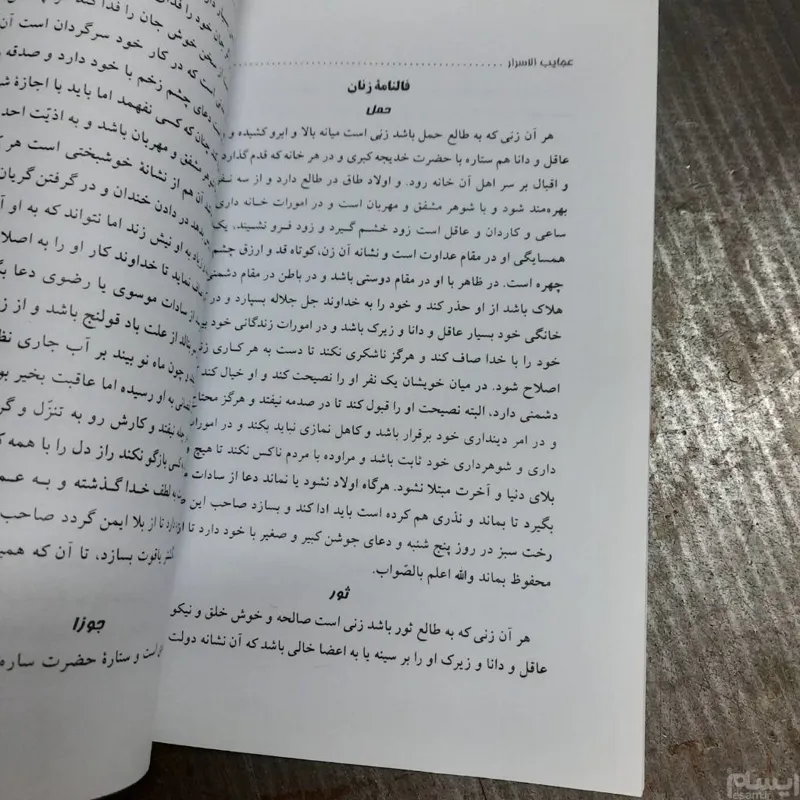 عجایب الاسرار
فالنامهٔ زنان
حمل
هر آن زنی که به طالع حمل باشد زنی است میانه بالا و ابرو کشیده و
عاقل و دانا هم ستاره با حضرت خدیجه کبری و در هر خانه که قدم گذارد
و اقبال بر سر اهل آن خانه رود. و اولاد طاق در طالع دارد و از سه نفر
بهره‌مند شود و با شوهر مشفق و مهربان است و در امورات خانه داری
ساعی و کاردان و عاقل است زود خشم گیرد و زود فرو نشیند، یک
همسایگی او در مقام عداوت است و نشانه آن زن، کوتاه قد و ازرق چشم
چهره است. در ظاهر با او در مقام دوستی باشد و در باطن در مقام دشمنی
هلاک باشد از او حذر کند و خود را به خداوند جل جلاله بسپارد و در
خانگی خود بسیار عاقل و دانا و زیرک باشد و در امورات زندگانی خود
خود را با خدا صاف کند و هرگز ناشکری نکند تا دست به هر کاری زند
اصلاح شود. در میان خویشان یک نفر او را نصیحت کند و او خیال کند
دشمنی دارد، البته نصیحت او را قبول کند تا در صدمه نیفتد و هرگز محتاج
و در امر دینداری خود برقرار باشد و کاهل نمازی نباید بکند و در امورات
داری و شوهرداری خود ثابت باشد و مراوده با مردم ناکس نکند تا هیچ
بلای دنیا و آخرت مبتلا نشود. هرگاه اولاد نشود یا نماند دعا از سادات
بگیرد تا بماند و نذری هم کرده است باید ادا کند و بسازد صاحب این
رخت سبز در روز پنج شنبه و دعای جوشن کبیر و صغیر با خود دارد تا
محفوظ بماند والله اعلم بالصّواب.
ثور
هر آن زنی که به طالع ثور باشد زنی است صالحه و خوش خلق و نیکو
عاقل و دانا و زیرک او را بر سینه یا به اعضا خالی باشد که آن نشانه دولت
سخن خوش جان را فدا کند
است که در کار خود سرگردان است آن
دعای چشم زخم با خود دارد و صدقه
چنان که کسی نفهمد اما باید با اجازهٔ
مشفق و مهربان باشد و به اذیّت احد
آن هم از نشانهٔ خوشبختی است هر
در دادن خندان و در گرفتن گریان
به او نیش زند اما نتواند که به او
نماید تا خداوند کار او را به اصلاح
از سادات موسوی یا رضوی دعا
از علت باد قولنج باشد و از
چون ماه نو بیند بر آب جاری
به او رسیده اما عاقبت بخیر
نیفتد و کارش رو به تنزّل و
بازگو نکند راز دل را با همه
به لطف خدا گذشته و به
تا از بلا ایمن گردد صاحب
یاقوت بسازد، تا آن که
جوزا
است و ستارهٔ حضرت ساره
ایسام
esam.ir